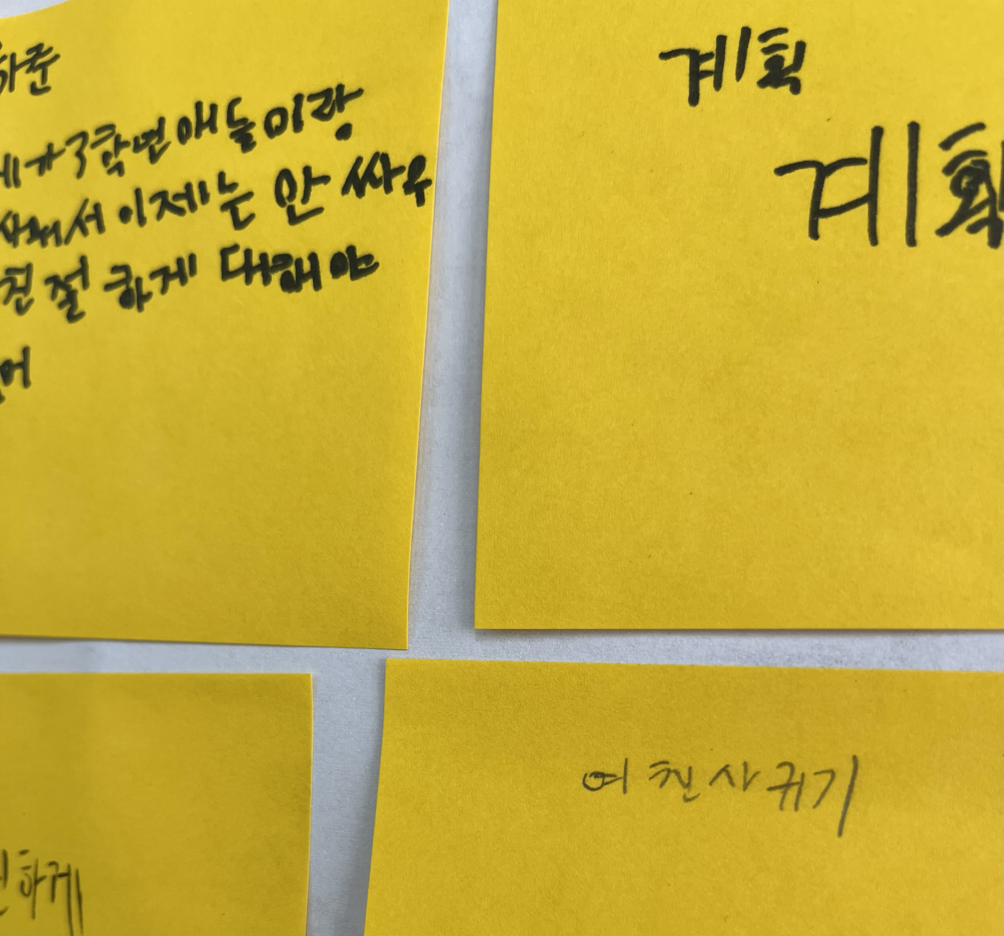 하준
3학년 애들이랑
이제는 안 싸우
친절하게 대해야
계획
계획
하게
여친사귀기